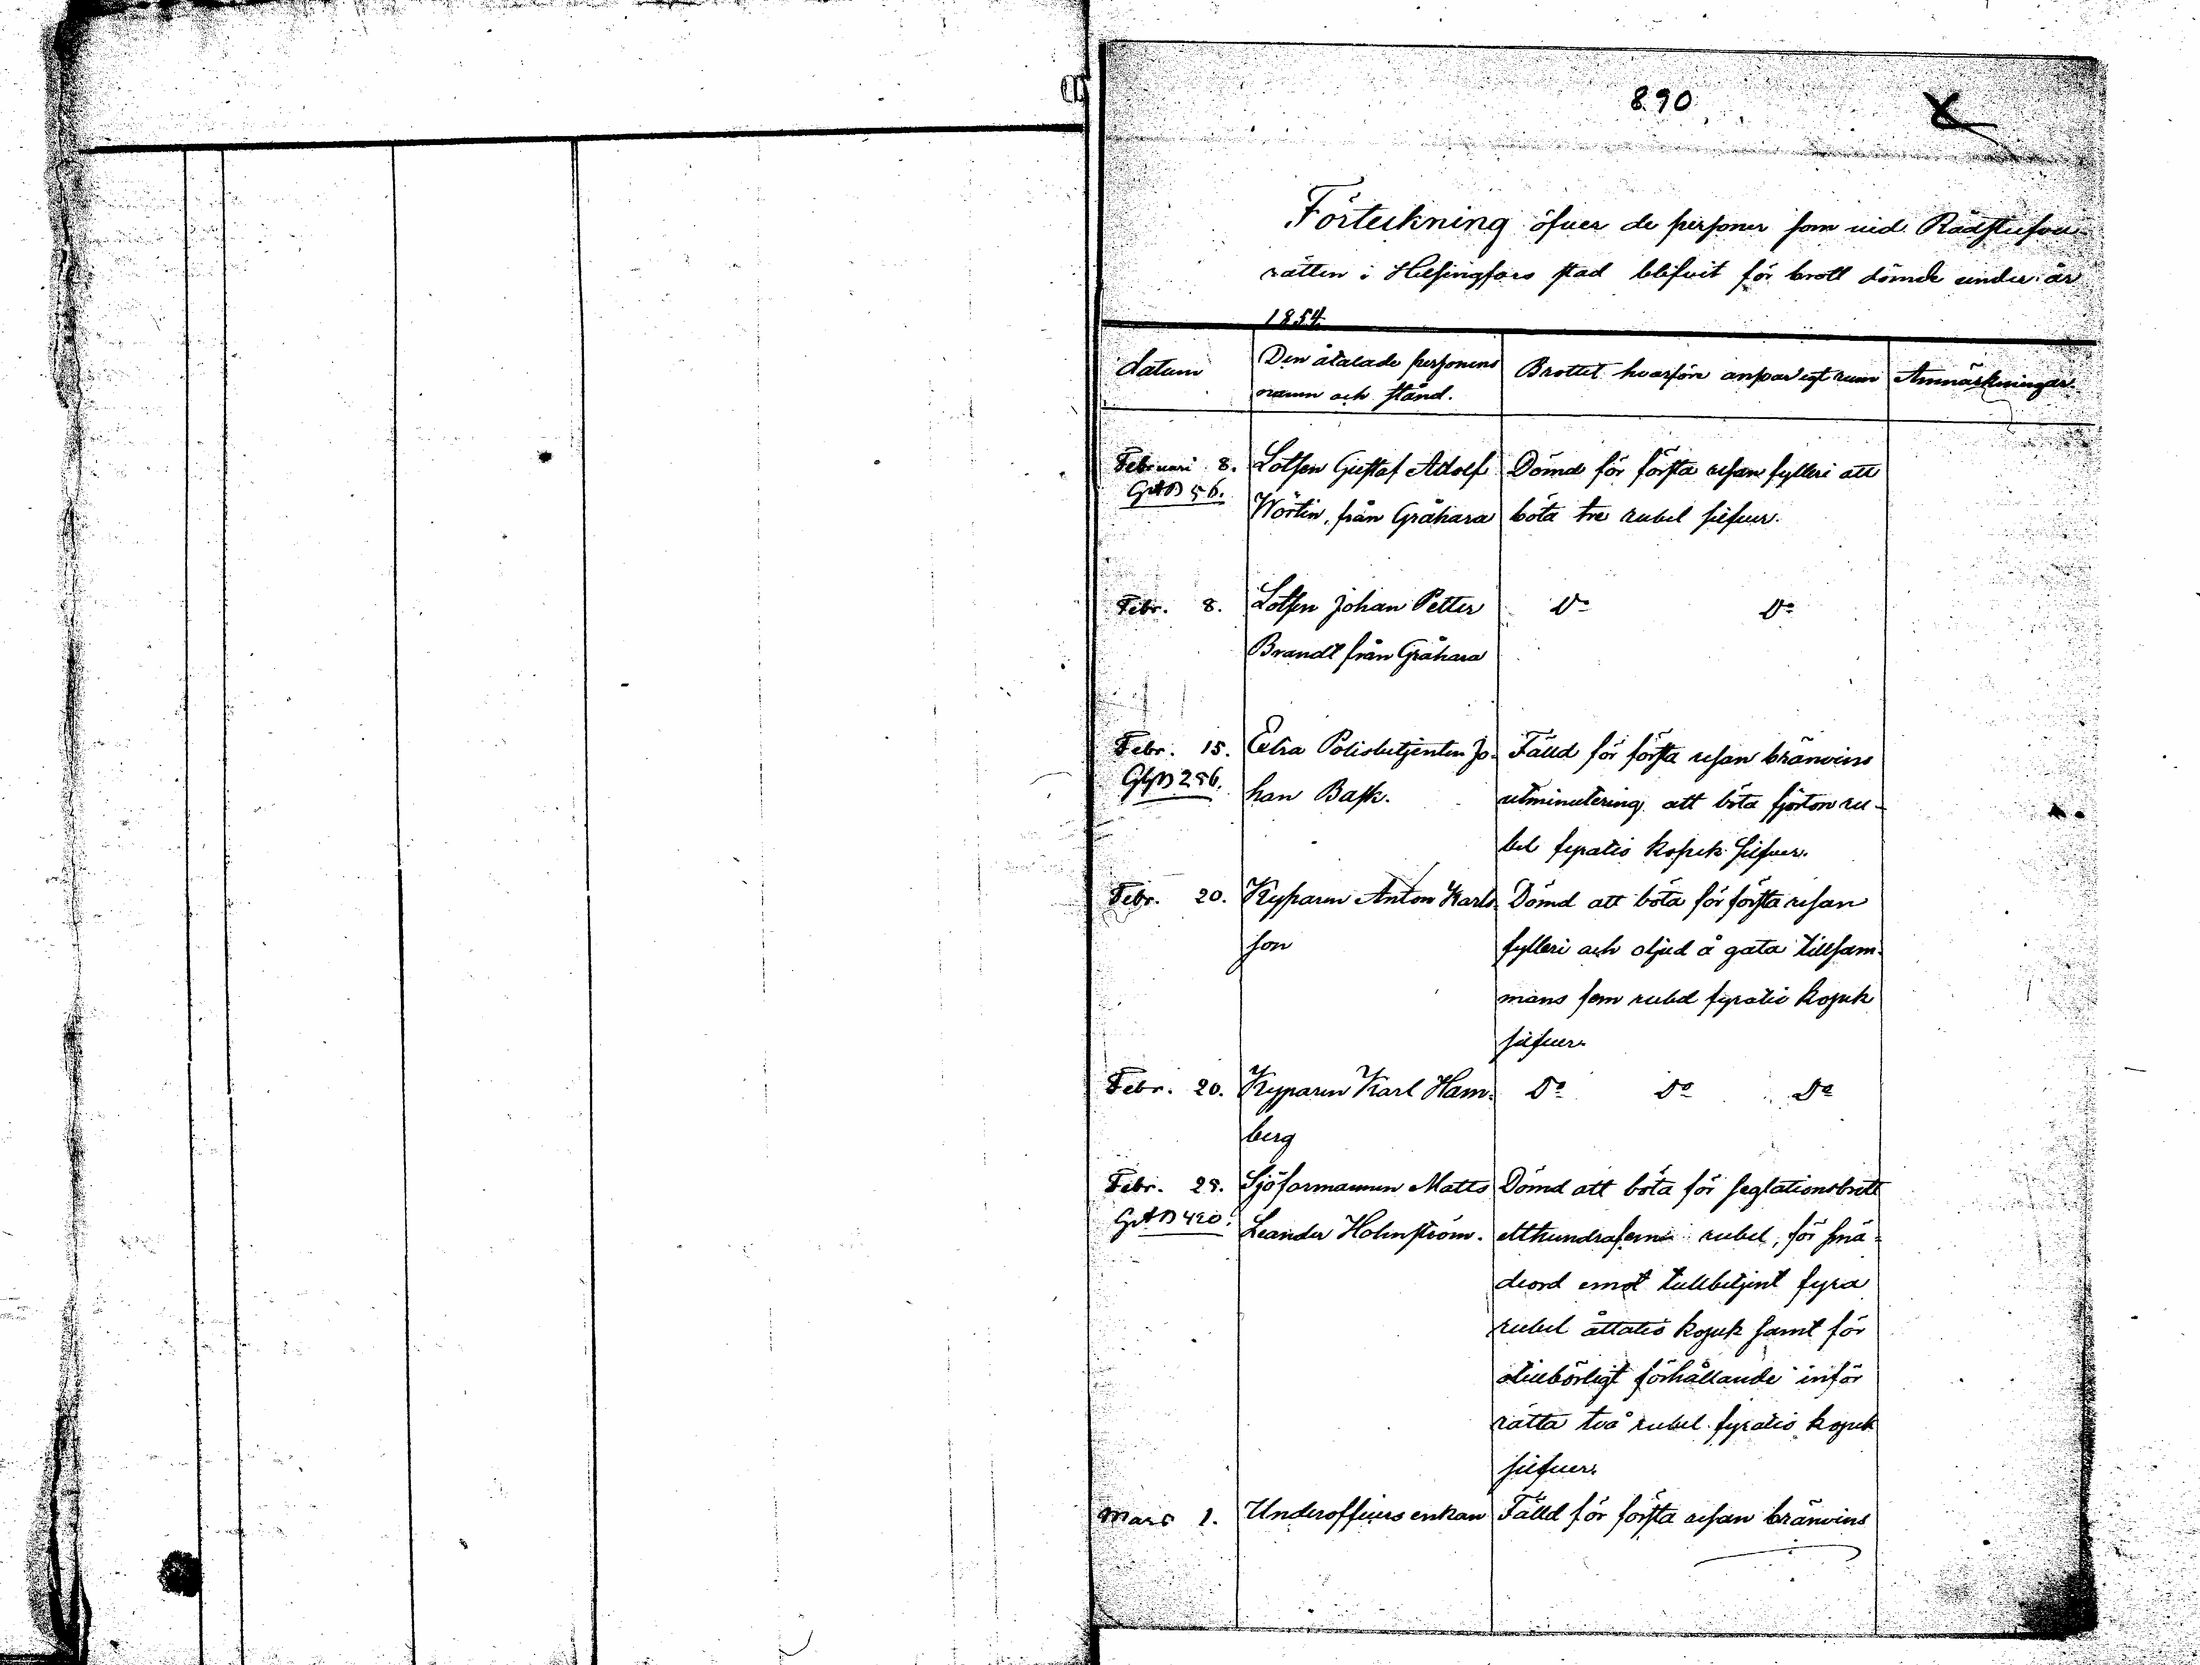 890
Förteckning öfver de personer som vid Rådstufvu-
rätten i Helsingfors stad blifvit för brott dömde under år
1854.
datum
Den åtalade personens
namn och stånd.
Brottet hvarföre ansvar egt rum
Anmärkningar.
Februari 8.
Lotsen Gustaf Adolf
Wörtin, från Gråhara
Dömd för första resan fylleri att
böta tre rubel silfver.
Febr. 8.
Lotsen Johan Petter
Brandt från Gråhara
Do Do
Febr. 15.
256.
Extra Polisbetjenten Jo-
han Bask.
Fälld för första resan bränvins
utminutering att böta fjorton ru-
bel fyratio kopek silfver.
Febr. 20.
Kyparen Anton Karls-
son
Dömd att böta för första resan
fylleri och oljud å gata tillsam-
mans fem rubel fyratio kopek
silfver.
Febr. 20.
Kyparen Karl Ham-
berg
Do Do Do
Febr. 28.
420.
Sjöfarmannen Matts
Leander Holmström.
Dömd att böta för seglationsbrott
etthundrafem rubel, för smä-
deord emot tullbetjent fyra
rubel åttatio kopek samt för
otillbörligt förhållande inför
rätta två rubel fyratio kopek
silfver.
Mars 1.
Underofficers enkan
Fälld för första resan bränvins